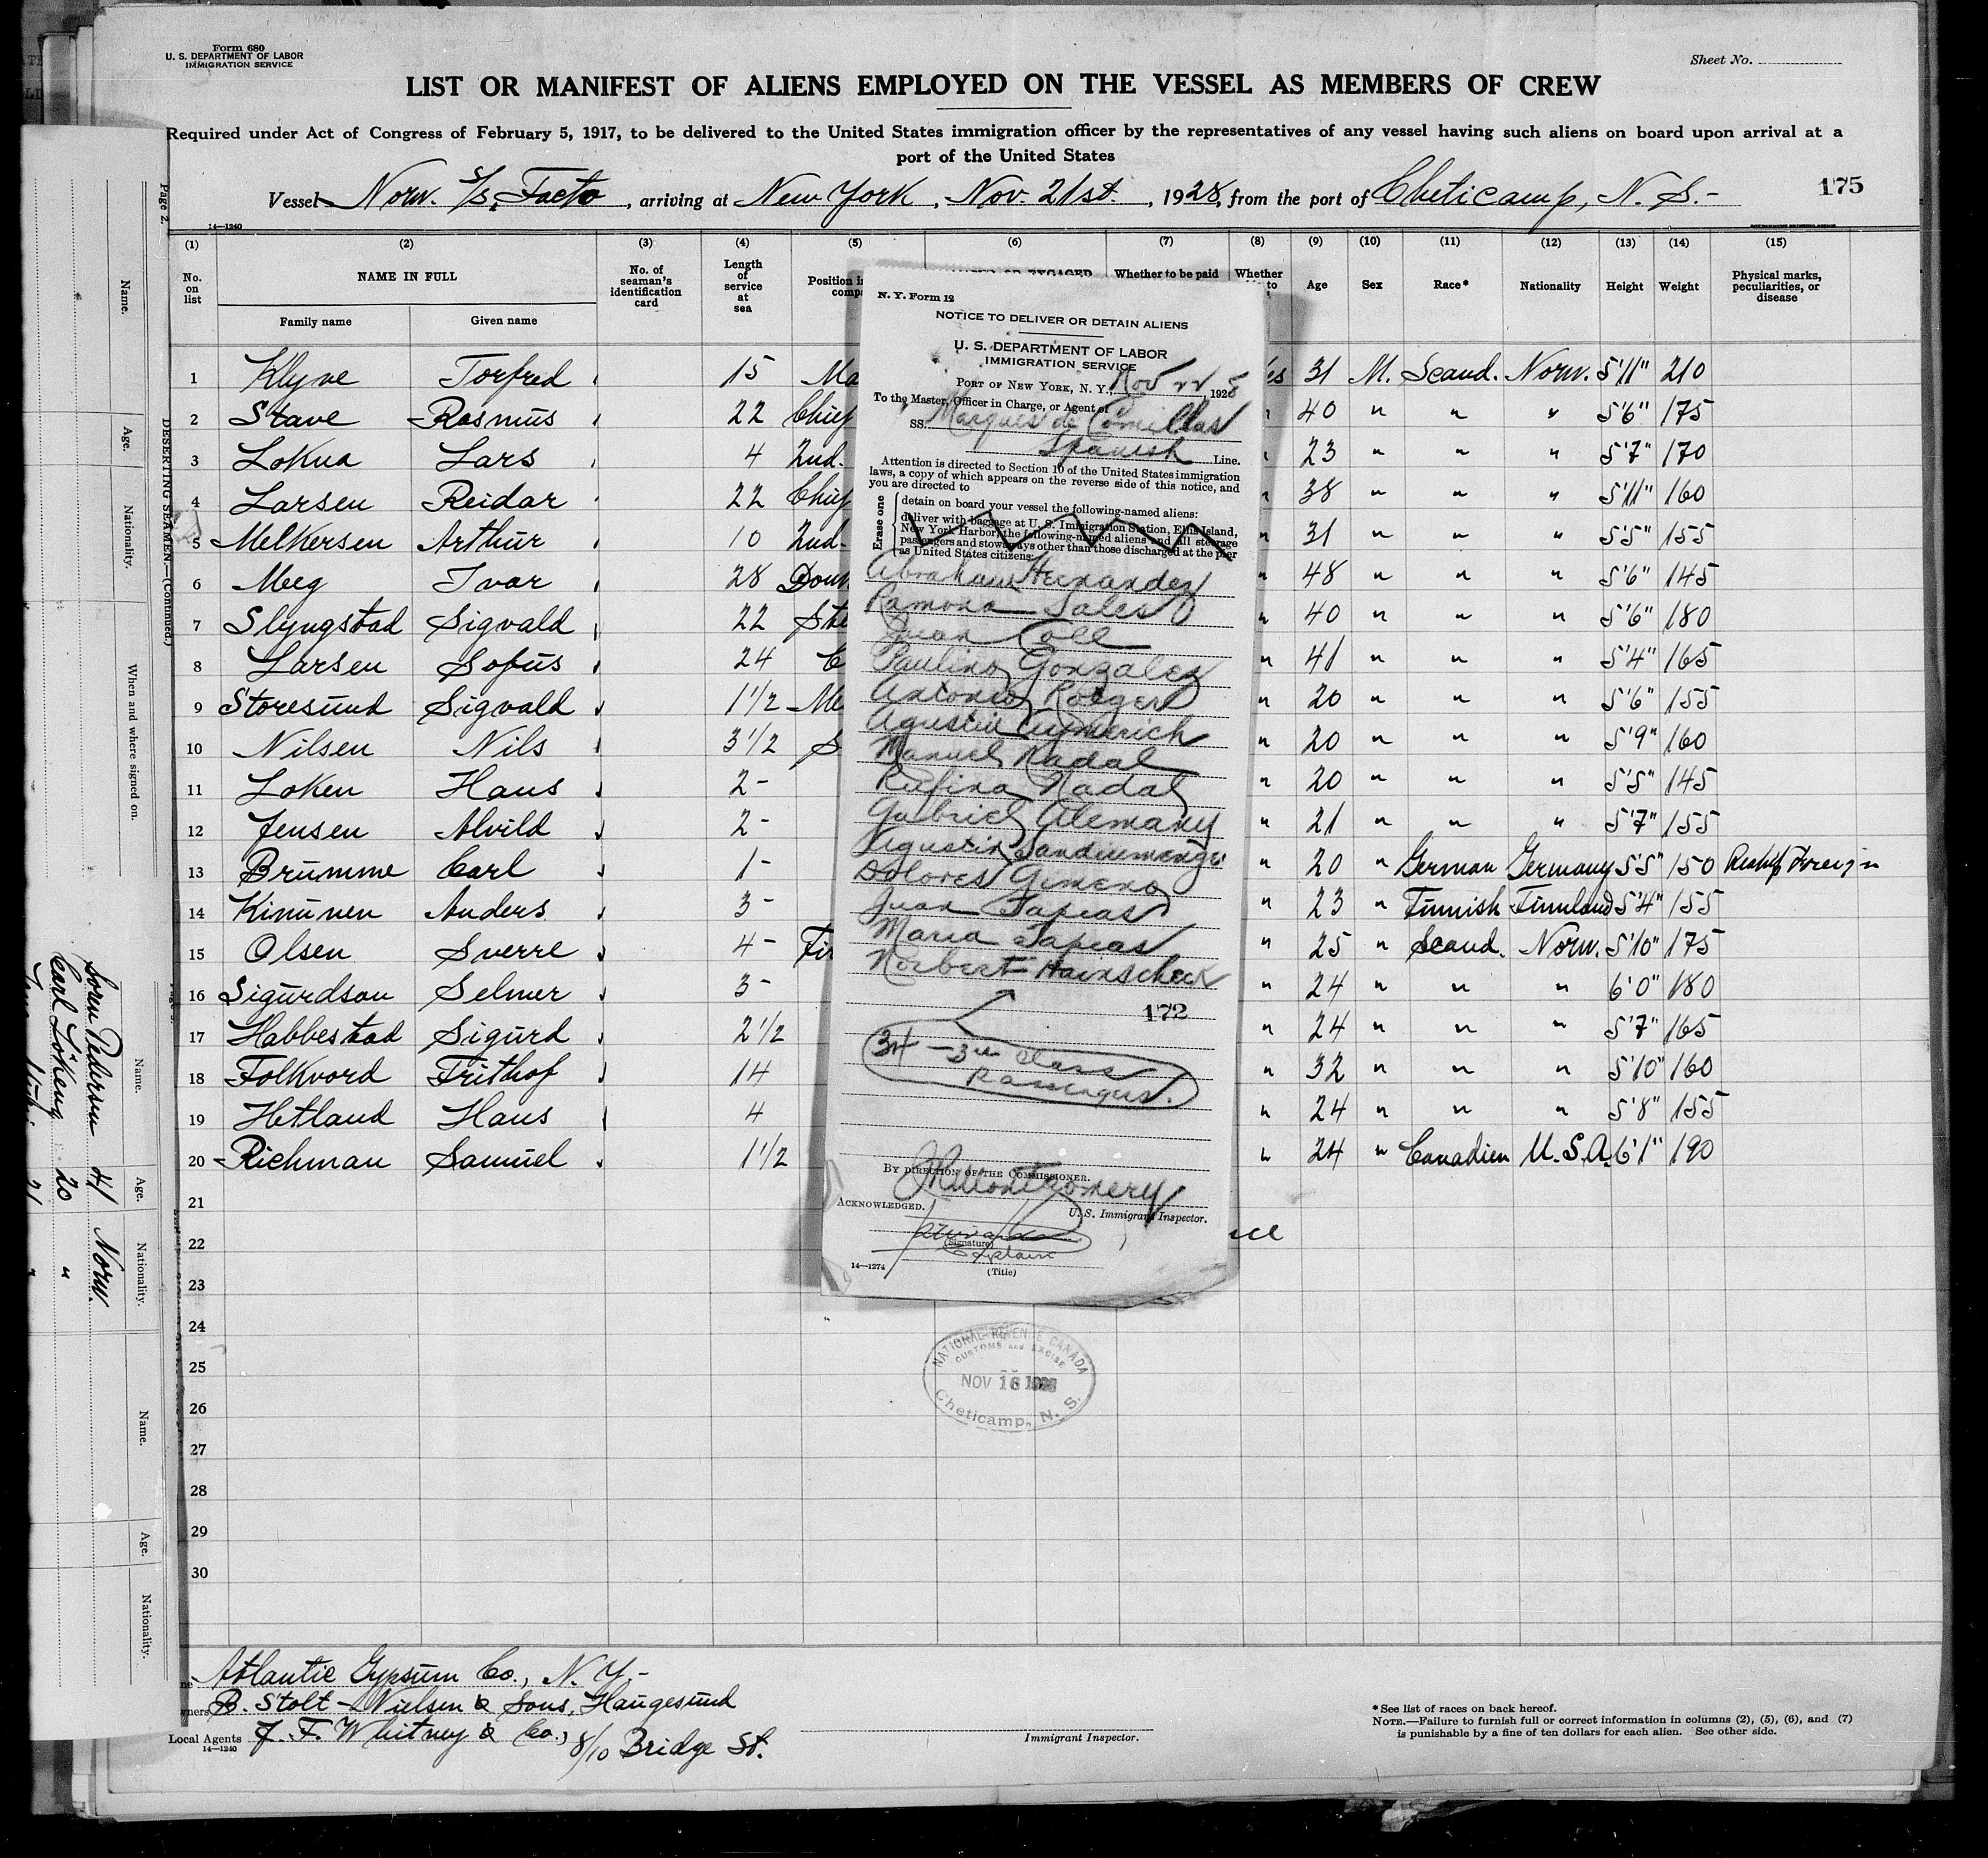 Form 680
U. S. DEPARTMENT OF LABOR
IMMIGRATION SERVICE
Sheet No.
LIST OR MANIFEST OF ALIENS EMPLOYED ON THE VESSEL AS MEMBERS OF CREW
Required under Act of Congress of February 5, 1917, to be delivered to the United States immigration officer by the representatives of any vessel having such aliens on board upon arrival at a
port of the United States
Vessel Norw. S/S. Facto, arriving at New York, Nov. 21st., 1928, from the port of Cheticamp, N. S.-
175
14—1240
(1) (2) (3) (4) (5) (6) (7) (8) (9) (10) (11) (12) (13) (14) (15)
No. on list
NAME IN FULL
Family name Given name
No. of seaman's identification card
Length of service at sea
Position
Whether to be paid
Whether
Age Sex Race* Nationality Height Weight
Physical marks, peculiarities, or disease
1 Klyve Torfred 15 Ma 31 M. Scand. Norw. 5'11" 210
2 Stave Rasmus 22 Chief 40 " " " 5'6" 175
3 Lokna Lars 4 2nd. 23 " " " 5'7" 170
4 Larsen Reidar 22 Chief 38 " " " 5'11" 160
5 Melkersen Arthur 10 2nd. 31 " " " 5'5" 155
6 Meeg Ivar 28 Don 48 " " " 5'6" 145
7 Slyngstad Sigvald 22 Ste 40 " " " 5'6" 180
8 Larsen Sofus 24 C 41 " " " 5'4" 165
9 Storesund Sigvald 1 1/2 Me 20 " " " 5'6" 155
10 Nilsen Nils 3 1/2 S 20 " " " 5'9" 160
11 Loken Hans 2- 20 " " " 5'5" 145
12 Jensen Alvild 2- 21 " " " 5'7" 155
13 Brumme Carl 1- 20 " German Germany 5'5" 150
14 Kinunen Anders 3- 23 " Finnish Finnland 5'4" 155
15 Olsen Sverre 4- Fir 25 " Scand. Norw. 5'10" 175
16 Sigurdson Selmer 3- 24 " " " 6'0" 180
17 Habbestad Sigurd 2 1/2 24 " " " 5'7" 165
18 Folkvord Frithof 14 32 " " " 5'10" 160
19 Hetland Hans 4 24 " " " 5'8" 155
20 Richman Samuel 1 1/2 24 " Canadien U.S.A. 6'1" 190
21
22
23
24
25
26
27
28
29
30
N. Y. Form 12
NOTICE TO DELIVER OR DETAIN ALIENS
U. S. DEPARTMENT OF LABOR
IMMIGRATION SERVICE
PORT OF NEW YORK, N. Y., Nov 22, 1928
To the Master, Officer in Charge, or Agent of
SS. Marques de Comillas
Spanish Line.
Attention is directed to Section 10 of the United States immigration
laws, a copy of which appears on the reverse side of this notice, and
you are directed to
Erase one
detain on board your vessel the following-named aliens:
deliver with baggage at U. S. Immigration Station, Ellis Island,
New York Harbor, the following-named aliens and all steerage
passengers and stowaways other than those discharged at the pier
as United States citizens:
Abraham Hernandez
Ramona Sales
Juan Coll
Paulino Gonzalez
Antonio Roeger
Agustin Aymerich
Manuel Nadal
Rufina Nadal
Gabriel Alemany
Agustin
Dolores Gimeno
Juan Tapias
Maria Tapias
Norbert Hainscheck
172
34 - 3rd Class
Passengers.
BY DIRECTION OF THE COMMISSIONER.
Montgomery
U. S. Immigrant Inspector.
ACKNOWLEDGED.
(Signature)
Captain
(Title)
14—1274
NATIONAL REVENUE CANADA
CUSTOMS and EXCISE
NOV 16 1928
Cheticamp, N. S.
Atlantic Gypsum Co., N. Y.-
B. Stolt-Nielsen & Sons, Haugesund
Local Agents J. F. Whitney & Co., 8/10 Bridge St.
14—1240
Immigrant Inspector.
*See list of races on back hereof.
NOTE.—Failure to furnish full or correct information in columns (2), (5), (6), and (7)
is punishable by a fine of ten dollars for each alien. See other side.
Page 2.
DESERTING SEAMEN—(Continued.)
Name. Age. Nationality. When and where signed on.
Name. Age. Nationality.
Soren Pedersen 41 Norw.
Carl Lökeng 20 "
21 "
Name. Age. Nationality.